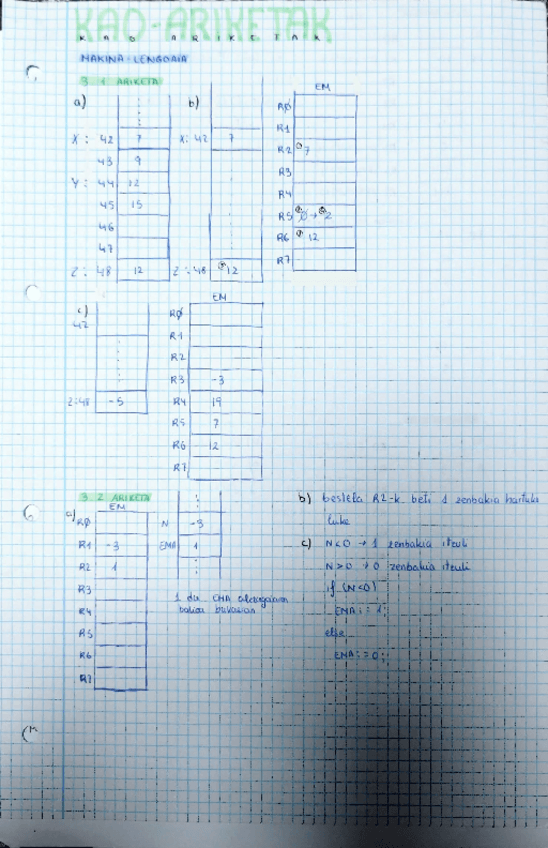 KAO-ARIKETAK
K A O A R I K E T A K
MAKINA-LENGOAIA
3.1 ARIKETA
a)
X: 42 7
43 9
Y: 44 12
45 15
46
47
Z: 48 12
b)
X: 42 7
Z: 48 12
EM
RØ
R1
R2 7
R3
R4
R5 0 → 2
R6 12
R7
c)
42
Z:48 -5
EM
RØ
R1
R2
R3 -3
R4 19
R5 7
R6 12
R7
3.2 ARIKETA
a)
EM
RØ
R1 -3
R2 1
R3
R4
R5
R6
R7
N -3
EMA 1
1 da EMA
balioa bukaeran
b) bestela R2-k beti 1 zenbakia hartuko
luke
c) N<0 → 1 zenbakia itzuli
N>0 → 0 zenbakia itzuli
if (N<0)
EMA := 1;
else
EMA := 0;